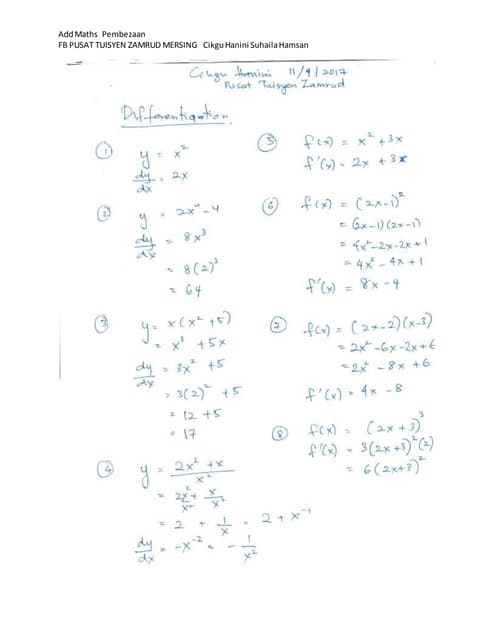 Add Maths Pembezaan
FB PUSAT TUISYEN ZAMRUD MERSING Cikgu Hanini Suhaila Hamsan
Cikgu Hanini 11/9/2017
Pusat Tuisyen Zamrud
Differentiation
① y = x²
dy/dx = 2x
② y = 2x⁴ - 4
dy/dx = 8x³
= 8(2)³
= 64
③ y = x(x² + 5)
= x³ + 5x
dy/dx = 3x² + 5
= 3(2)² + 5
= 12 + 5
= 17
④ y = 2x² + x / x²
= 2x²/x² + x/x²
= 2 + 1/x = 2 + x⁻¹
dy/dx = -x⁻² = - 1/x²
⑤ f(x) = x² + 3x
f'(x) = 2x + 3x
⑥ f(x) = (2x-1)²
= (2x-1)(2x-1)
= 4x²-2x-2x+1
= 4x² - 4x + 1
f'(x) = 8x - 4
⑦ f(x) = (2x-2)(x-3)
= 2x² - 6x - 2x + 6
= 2x² - 8x + 6
f'(x) = 4x - 8
⑧ f(x) = (2x + 3)³
f'(x) = 3(2x+3)²(2)
= 6(2x+3)²